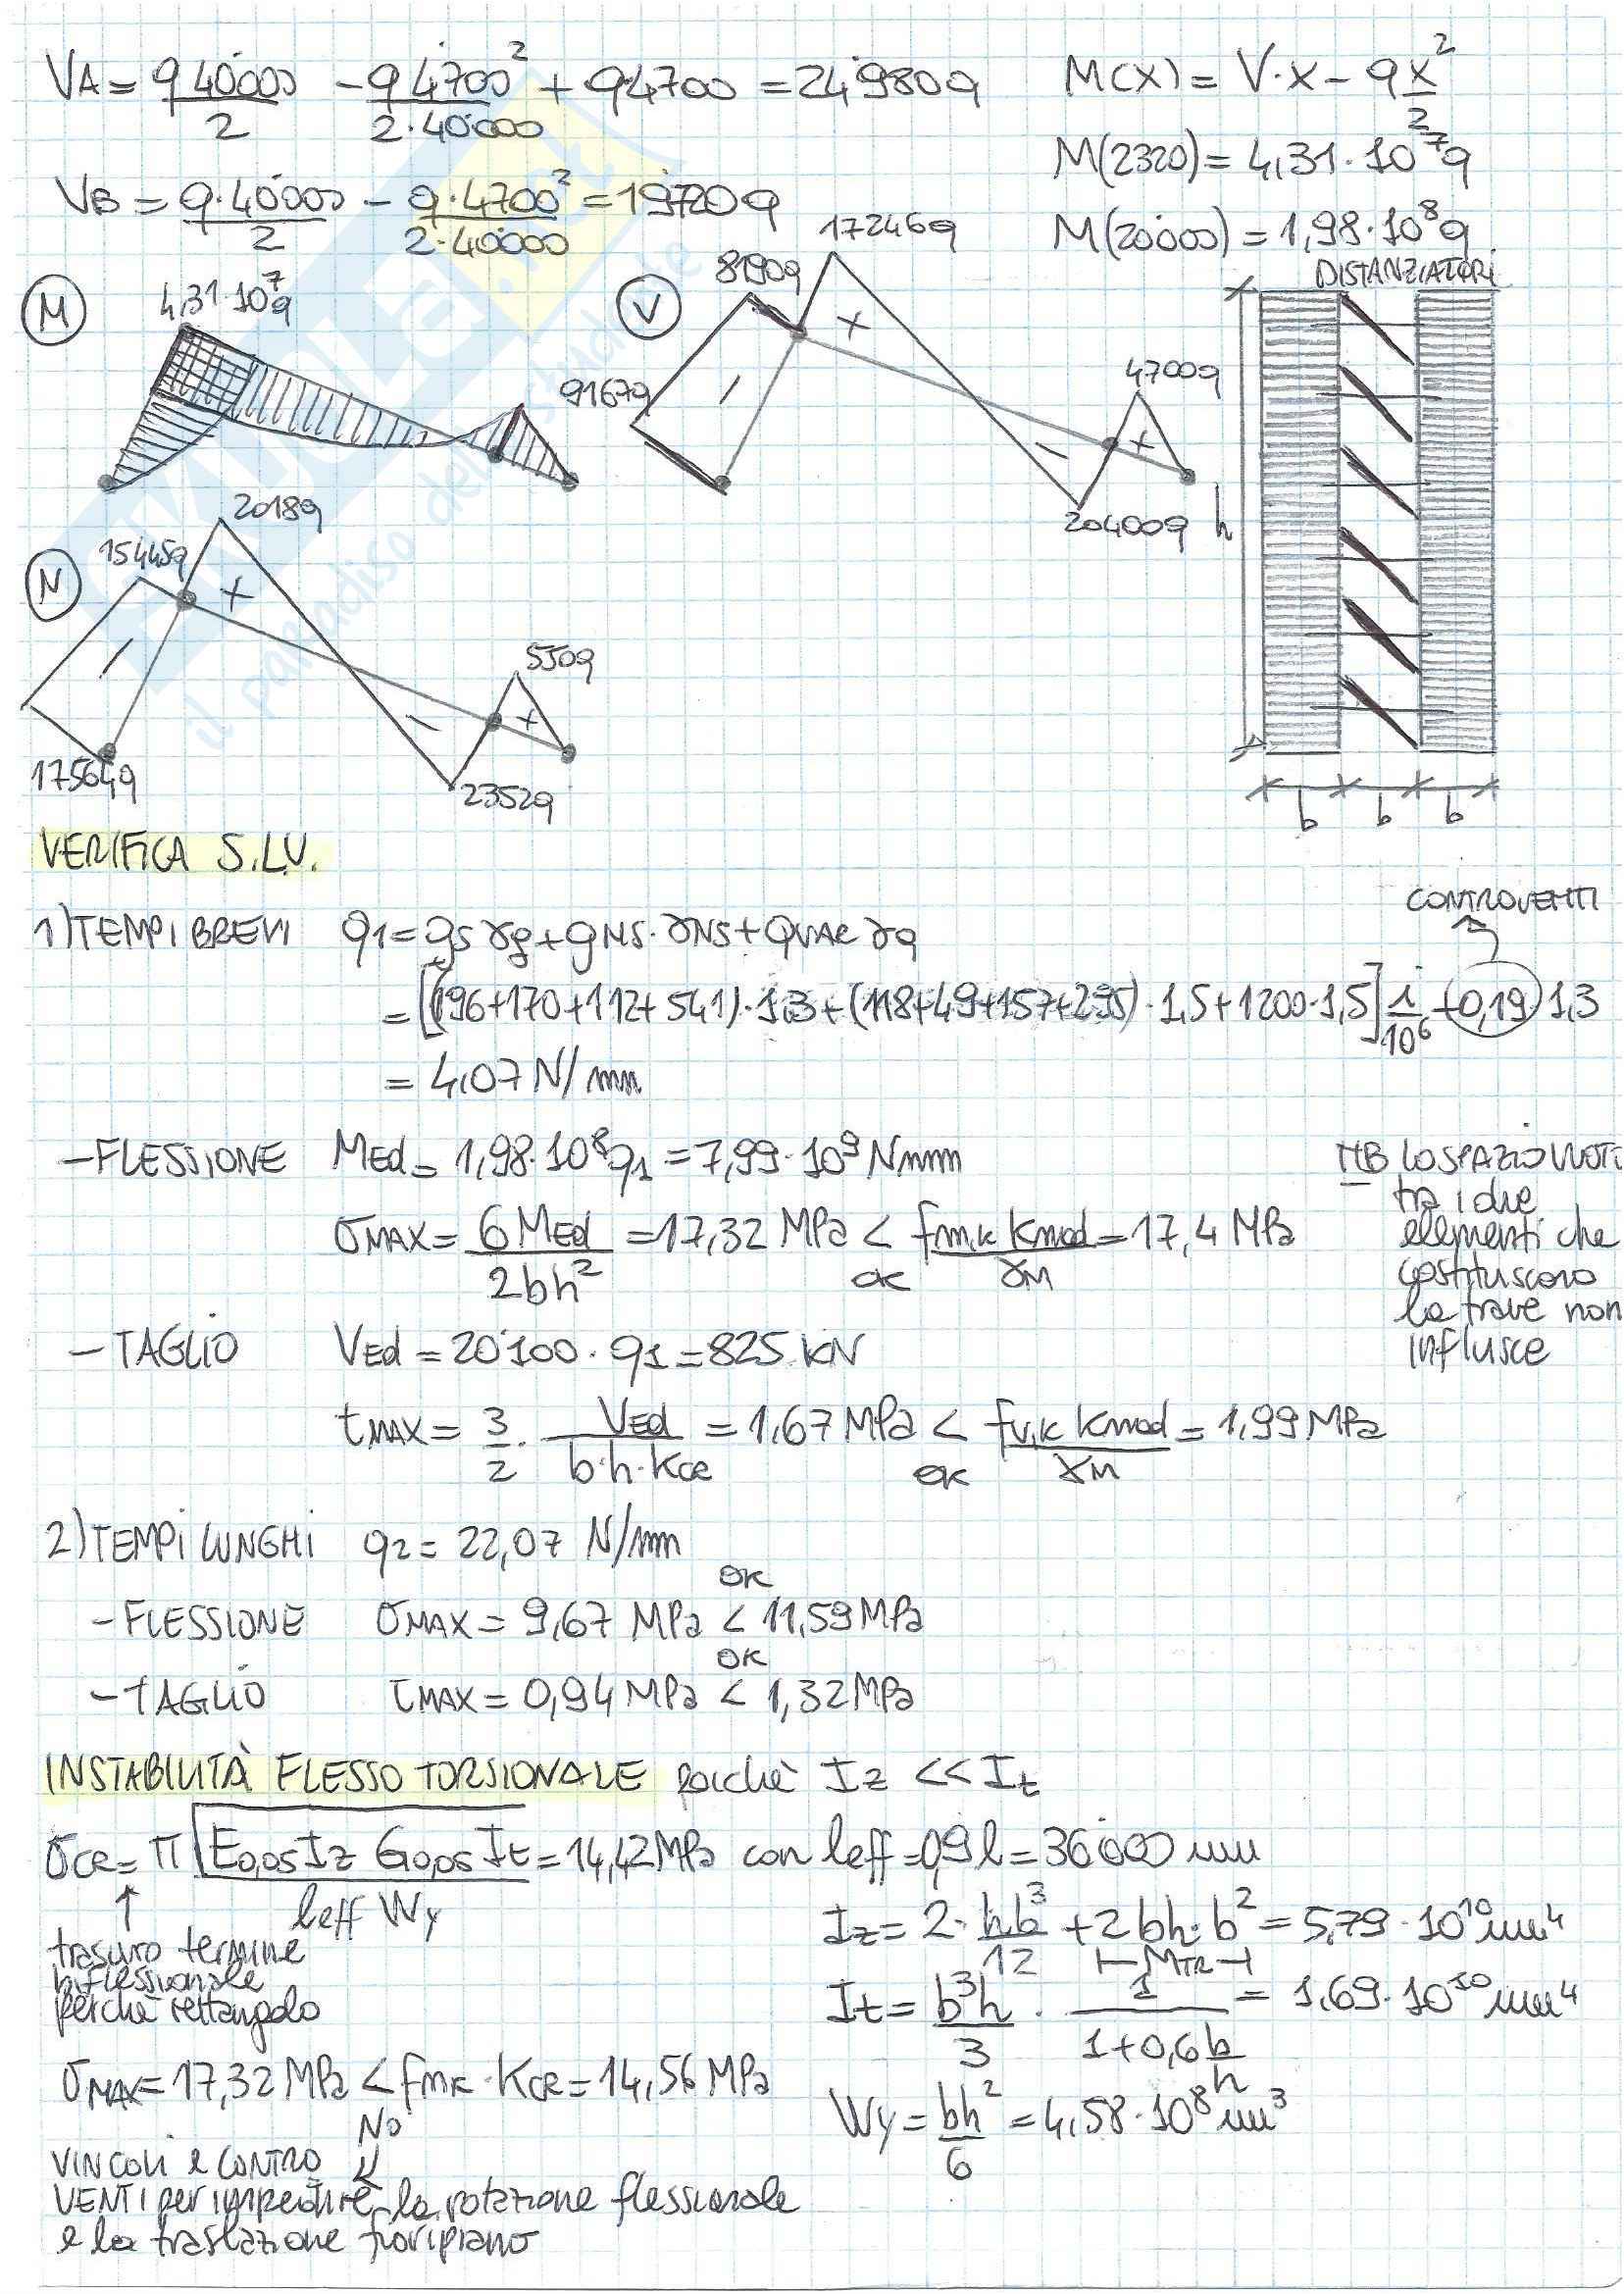 VA = q 40'000/2 - q 4700²/(2·40'000) + q4700 = 24'980q
M(x) = V·x - q x²/2
VB = q·40'000/2 - q·4700²/(2·40'000) = 19720q
M(2320) = 4,31·10⁷q
M(20'000) = 1,98·10⁸q
M
4,31·10⁷q
V
8190q
17246q
9167q
4700q
20400q
DISTANZIATORI
h
b b b
N
15445q
2018q
550q
17564q
2352q
il paradiso dello studente
VERIFICA S.L.U.
1) TEMPI BREVI q1 = gs γg + gNS·γNS + QVAR γq
CONTROVENTI
= [(196+170+112+541)·1,3+(118+49+157+295)·1,5+1200·1,5] 1/10⁶ +0,19 1,3
= 4,07 N/mm
- FLESSIONE MEd = 1,98·10⁸q1 = 7,99·10⁹ Nmm
σMAX = 6 MEd/2bh² = 17,32 MPa < fm,k kmod/γM = 17,4 MPa
ok
NB LO SPAZIO VUOTO
tra i due
elementi che
costituiscono
la trave non
influisce
- TAGLIO VEd = 20'100·q1 = 825 kN
τMAX = 3/2 · VEd/(b·h·kcr) = 1,67 MPa < fv,k kmod/γM = 1,99 MPa
ok
2) TEMPI LUNGHI q2 = 22,07 N/mm
- FLESSIONE σMAX = 9,67 MPa < 11,59 MPa
OK
- TAGLIO τMAX = 0,94 MPa < 1,32 MPa
OK
INSTABILITÀ FLESSO TORSIONALE poichè Iz << It
σCR = π √(E0,05 Iz G0,05 It)/(leff Wy) = 14,42 MPa con leff = 0,9 l = 36'000 mm
↑
trascuro termine
biflessionale
perchè rettangolo
Iz = 2·hb³/12 + 2bh·b² = 5,79·10¹⁰ mm⁴
MTR
It = b³h/3 · 1/(1+0,6 b/h) = 1,69·10¹⁰ mm⁴
σMAX = 17,32 MPa < fmk·KCR = 14,56 MPa
NO
Wy = bh²/6 = 4,58·10⁸ mm³
VINCOLI e CONTRO
VENTI per impedire la rotazione flessionale
e la traslazione fuoripiano